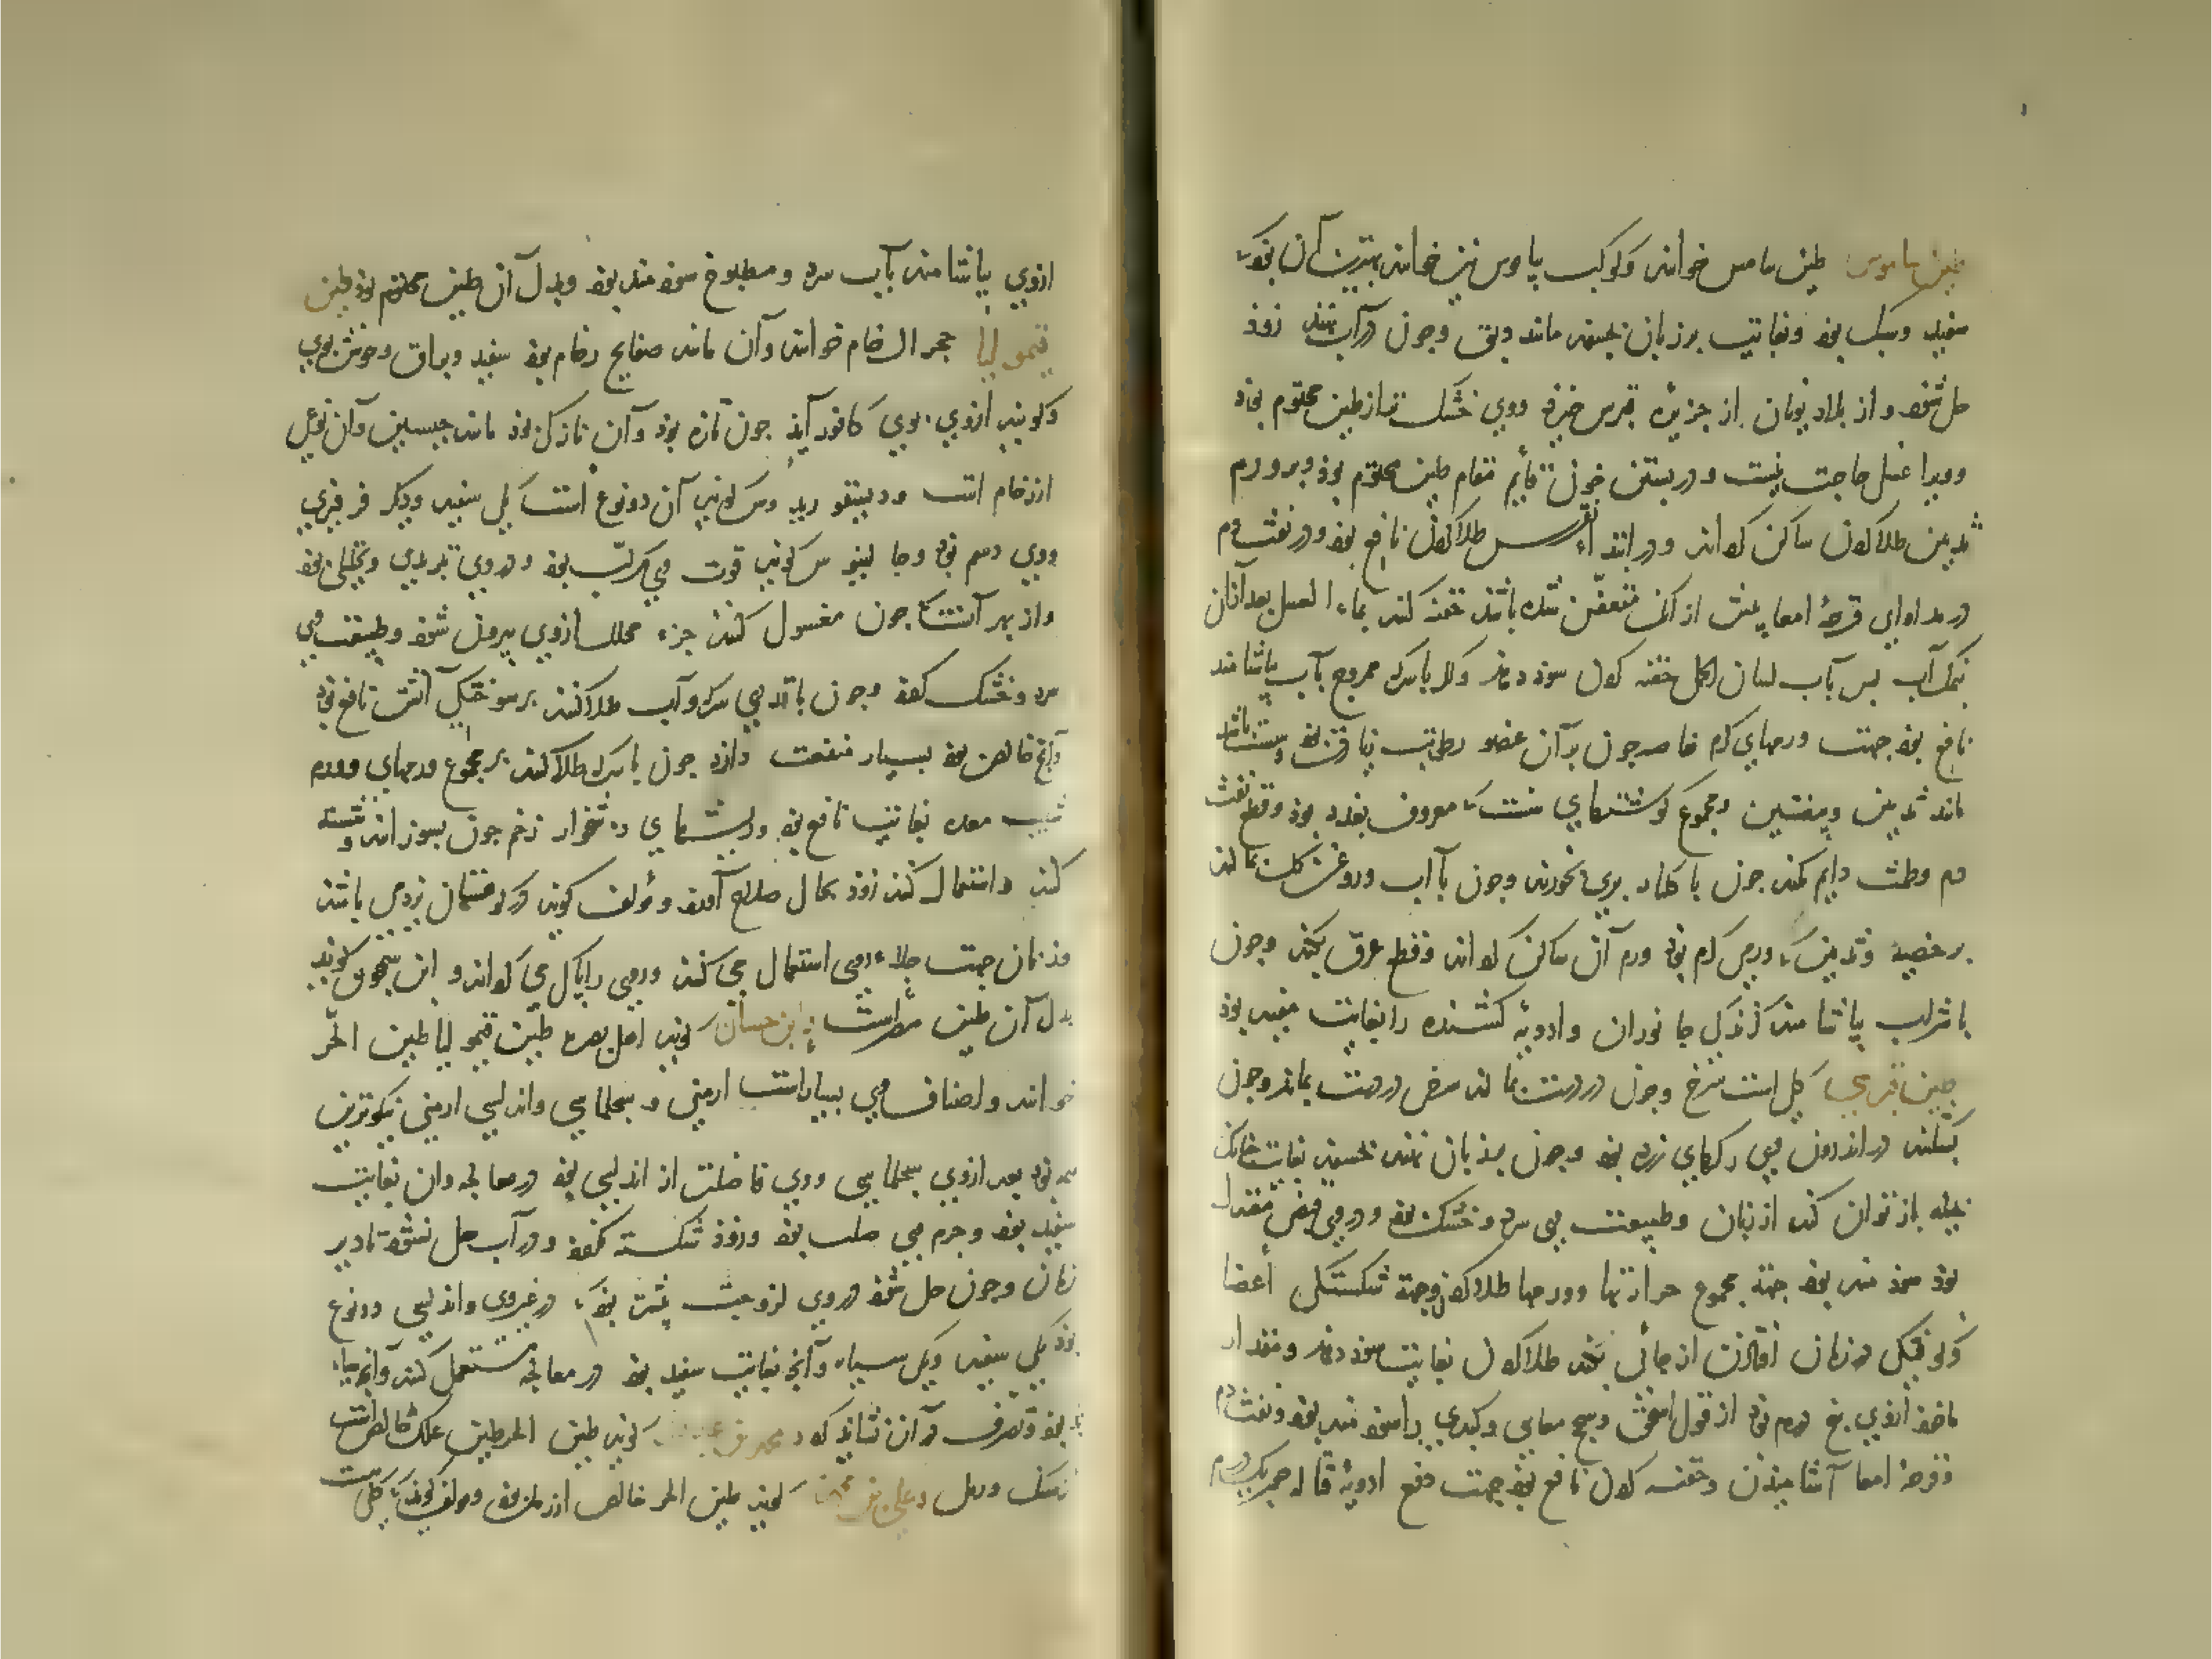 طین ساموس طین سامس خوانند و کوکب ساموس نیز خوانند بهترین آن بود که
سفید و سبک بود و بغایت بر زبان بچسبد مانند دبق و چون در آب نهند زود
حل شود و از بلاد یونان از جزیره قبرس خیزد و وی خشک‌تر از طین مختوم بود
و ویرا غسل حاجت نیست و در بستن خون قایم مقام طین مختوم بود و بر ورم
ثدیین طلا کردن ساکن گرداند و در ابتداء نقرس طلا کردن نافع بود و در نفث دم
در مداوای قرحهٔ امعا پیش از آنک متعفن شده باشد حقنه کنند بماء العسل بعد از آن
نمک آب پس بآب لسان الحمل حقنه کردن سود دهد و کر با سرکه ممزوج بآب بیاشامند
نافع بود جهت ورمهای گرم خاصه چون بر آن عضو رطوبت
مانند ثدیین و بیضتین و مجموع گوشتهای سست که معروف بغدد بود و قطع نفث
دم و طمث دایم بکند چون با گلنار بری بخورند و چون با آب و روغن گل بمالند
بر خصیه و ثدیین که ورمی گرم بود ورم آن ساکن گرداند و قطع عرق بکند و چون
با شراب بیاشامند گزندگی جانوران و ادویهٔ کشنده را بغایت مفید بود
طین قبرسی گلی است سرخ و چون در دست بمالند سرخی در دست بماند و چون
بشکنند در اندرون وی رگهای زرد بود و چون بر زبان نهند بچسبد بغایت چنانک
بحیله باز توان کند از زبان و طبیعت وی سرد و خشک بود و در وی قبض معتدل
بود سودمند بود جهة مجموع حرارتها و ورمها طلا کردن و جهة شکستگی اعضا
و کوفتگی در زمان افتادن از جائی بلند طلا کردن بغایت سود دهد و مقدار
ماخوذ ازوی پنج درم بود از قول اسحق و سحج معایی و کبدی را سودمند بود و نفث دم
و قرحهٔ امعا آشامیدن و حقنه کردن نافع بود جهت دفع ادویهٔ قتاله چون یک درم
ازوی بیاشامند بآب سرد و مطبوخ سودمند بود و بدل آن طین مختوم بود طین
قیمولیا حجر الرخام خوانند و آن مانند صفایح رخام بود سفید و براق و خوش بوی
و گویند ازوی بوی کافور آید چون تازه بود و آن نازک بود مانند جبسین و آن نوعی
از رخام است و دیسقوریدوس گوید آن دو نوع است یکی سفید و دیگر فرفیری
و وی دسم بود و جالینوس گوید قوت وی مرکب بود و در وی تبریدی و تحلیلی بود
و از بهر آنست که چون مغسول کنند جزء محلل ازوی بیرون شود و طبیعت وی
سرد و خشک بود و چون با سرکه و آب طلا کنند بر سوختگی آتش نافع بود
و آنچه خالص بود بسیار منفعت دارد چون با سرکه طلا کنند بر مجموع ورمهای و ورم
معده بغایت نافع بود و ریشهای دشخوار زخم چون بسوزانند و شسته
کنند و استعمال کنند زود بحال صلاح آورد و مؤلف گوید در کوهستان یزد می باشد
و زنان جهت جلاء روی استعمال می کنند و روی را پاک می گرداند و ابن سمجون گوید
بدل آن طین مصر است ابن حسان گوید اهل بصره طین قیمولیا طین الحر
خوانند و اصناف وی بسیار است ارمنی و سجلماسی و اندلسی ارمنی نیکوترین
همه بود بعد ازوی سجلماسی و وی فاضلتر از اندلسی بود در معالجه و آن بغایت
سفید بود و جرم وی صلب بود و زود شکسته نگردد و در آب حل نشود تا دیر
زمان و چون حل شود در وی لزوجت بیشتر بود که در غیر وی و اندلسی دو نوع
بود یکی سفید و یکی سیاه و آنچه بغایت سفید بود در معالجه مستعمل کنند و آنچه سیاه
بود تصرف در آن نشاید کرد محمد بن گوید طین الحر طین علک خالص است
از سنک و رمل و علی بن محمد گوید طین الحر خالص از رمل بود و مولف گوید که گلی است